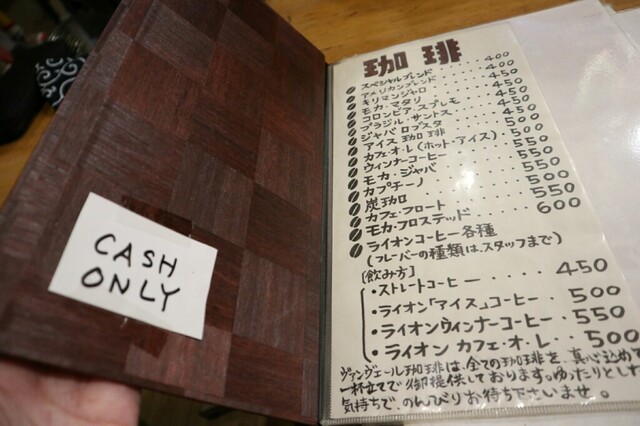 CASH
ONLY
珈琲
スペシャルブレンド 400
アメリカンブレンド 400
キリマンジャロ 450
モカ・マタリ 450
コロンビア・スプレモ 450
ブラジル・サントス 450
ジャバ ロブスタ 450
アイス珈琲 500
カフェ・オ・レ(ホット・アイス) 500
ウィンナーコーヒー 550
モカ・ジャバ 500
カプチーノ 550
炭珈 500
カフェ・フロート 550
モカ・フロステッド 600
ライオンコーヒー各種
(フレーバーの種類は、スタッフまで)
[飲み方]
・ストレートコーヒー 450
・ライオン「アイス」コーヒー 500
・ライオンウィンナーコーヒー 550
・ライオン カフェ・オ・レ 500
ヴァンヴェール珈琲は、全ての珈琲を、真心込めて
一杯立てで御提供しております。ゆったりとした
気持ちで、のんびりお待ち下さいませ。